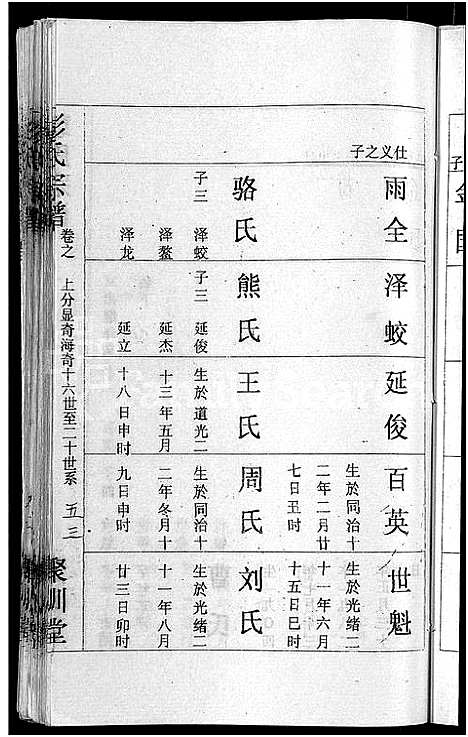 仕义之子
雨全
骆氏
子三 泽蛟
泽鳌
泽龙
泽蛟
熊氏
子三 延俊
延杰
延立
延俊
王氏
生於道光二
十三年五月
十八日申时
百英
生於同治十
二年二月廿
七日丑时
周氏
生於同治十
二年冬月十
九日申时
世魁
生於光绪二
十一年六月
十五日巳时
刘氏
生於光绪二
十一年八月
廿三日卯时
彭氏宗谱
卷之
上分显奇海奇十六世至二十世系
五三
聚训堂